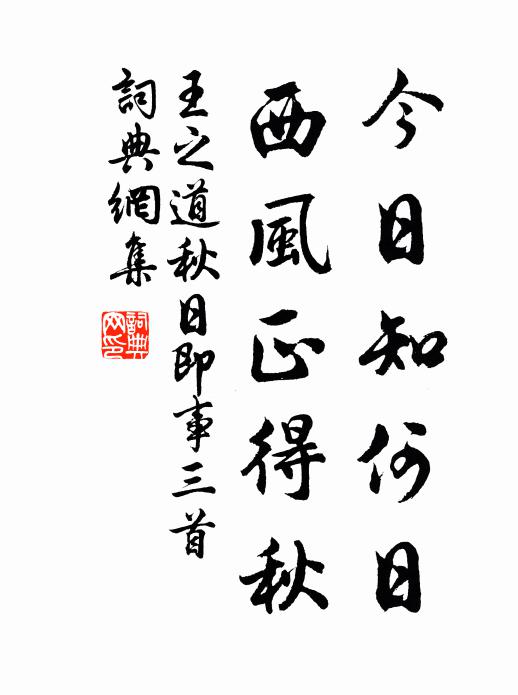 今日知何日
西風正得秋
王之道秋日即事三首
詞典網集
詞典網印